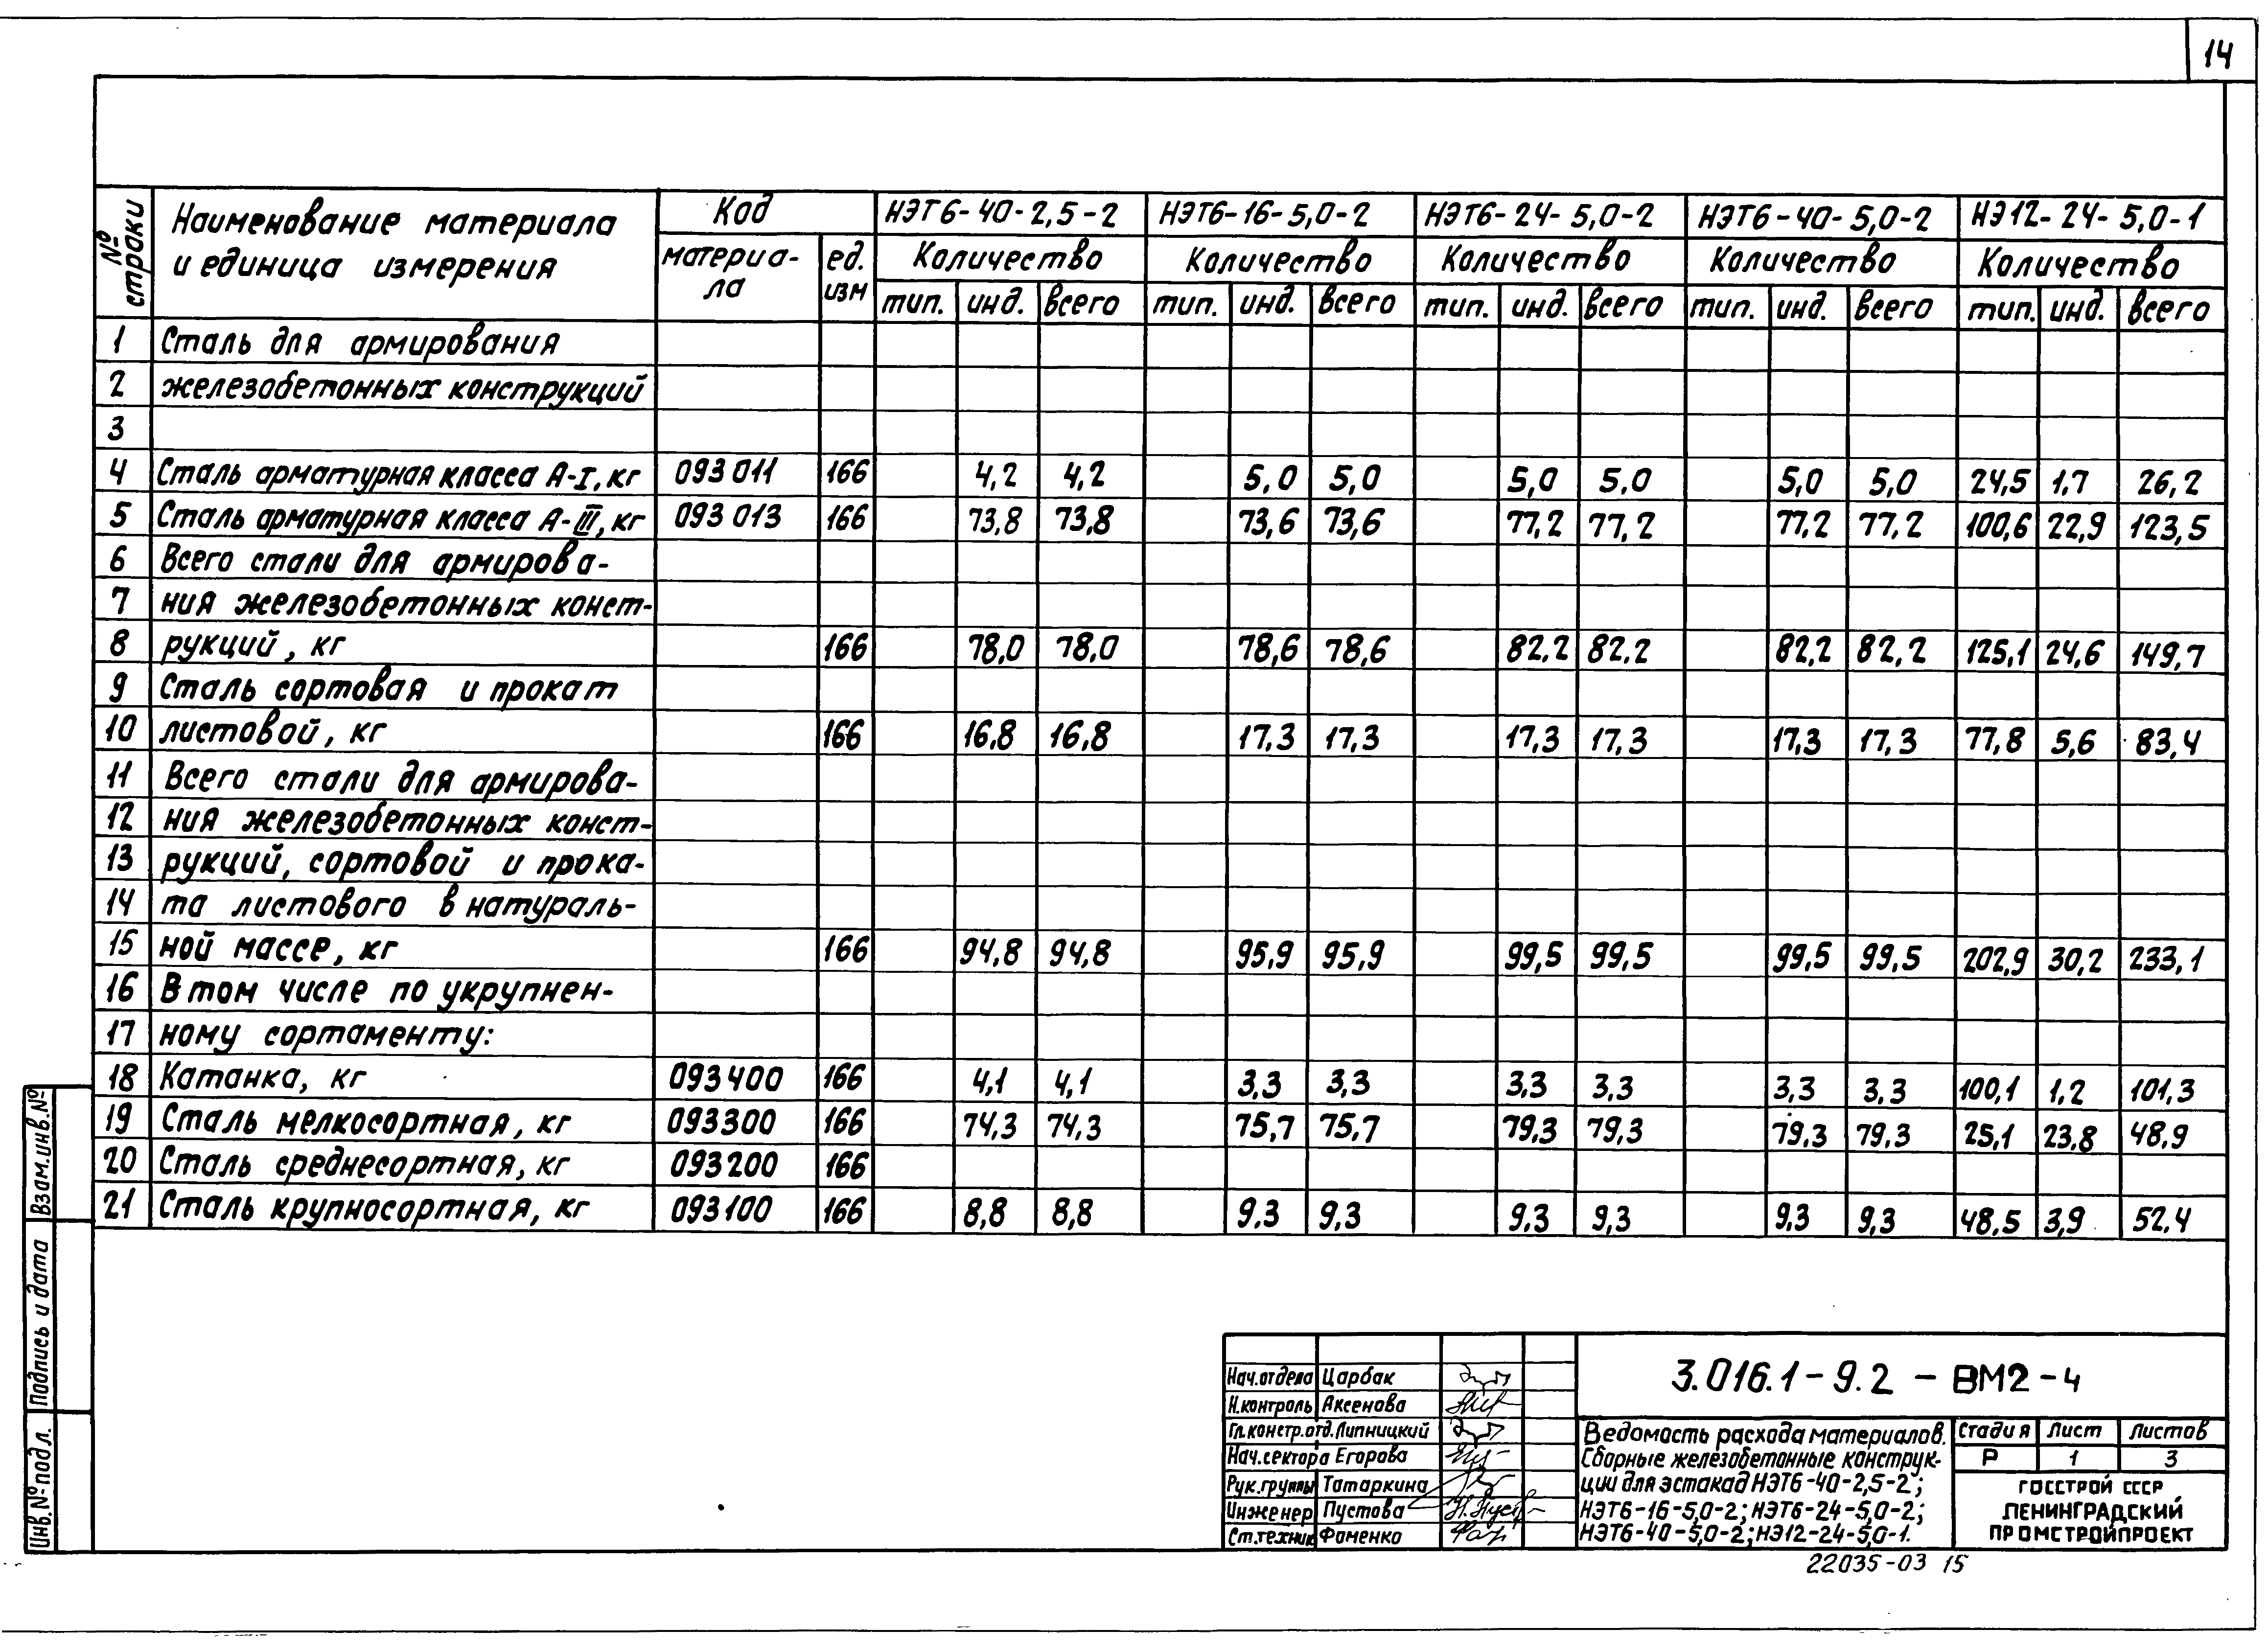 14
№ строки Наименование материала и единица измерения Код НЭТ6-40-2,5-2 НЭТ6-16-5,0-2 НЭТ6-24-5,0-2 НЭТ6-40-5,0-2 НЭ12-24-5,0-1
материа-ла ед. изм Количество Количество Количество Количество Количество
тип. инд. всего тип. инд. всего тип. инд. всего тип. инд. всего тип. инд. всего
1 Сталь для армирования
2 железобетонных конструкций
3
4 Сталь арматурная класса А-I, кг 093011 166 4,2 4,2 5,0 5,0 5,0 5,0 5,0 5,0 24,5 1,7 26,2
5 Сталь арматурная класса А-III, кг 093013 166 73,8 73,8 73,6 73,6 77,2 77,2 77,2 77,2 100,6 22,9 123,5
6 Всего стали для армирова-
7 ния железобетонных конст-
8 рукций, кг 166 78,0 78,0 78,6 78,6 82,2 82,2 82,2 82,2 125,1 24,6 149,7
9 Сталь сортовая и прокат
10 листовой, кг 166 16,8 16,8 17,3 17,3 17,3 17,3 17,3 17,3 77,8 5,6 83,4
11 Всего стали для армирова-
12 ния железобетонных конст-
13 рукций, сортовой и прока-
14 та листового в натураль-
15 ной массе, кг 166 94,8 94,8 95,9 95,9 99,5 99,5 99,5 99,5 202,9 30,2 233,1
16 В том числе по укрупнен-
17 ному сортаменту:
18 Катанка, кг 093400 166 4,1 4,1 3,3 3,3 3,3 3,3 3,3 3,3 100,1 1,2 101,3
19 Сталь мелкосортная, кг 093300 166 74,3 74,3 75,7 75,7 79,3 79,3 79,3 79,3 25,1 23,8 48,9
20 Сталь среднесортная, кг 093200 166
21 Сталь крупносортная, кг 093100 166 8,8 8,8 9,3 9,3 9,3 9,3 9,3 9,3 48,5 3,9 52,4
Взам.инв.№
Подпись и дата
Инв.№ подл.
Нач.отдела Царбак
Н.контроль Аксенова
Гл.констр.отд. Липницкий
Нач.сектора Егорова
Рук.группы Татаркина
Инженер Пустова
Ст.техник Фоменко
3.016.1-9.2-ВМ2-4
Ведомость расхода материалов.
Сборные железобетонные конструк-
ции для эстакад НЭТ6-40-2,5-2;
НЭТ6-16-5,0-2; НЭТ6-24-5,0-2;
НЭТ6-40-5,0-2; НЭ12-24-5,0-1.
Стадия Лист Листов
Р 1 3
ГОССТРОЙ СССР
ЛЕНИНГРАДСКИЙ
ПРОМСТРОЙПРОЕКТ
22035-03 15